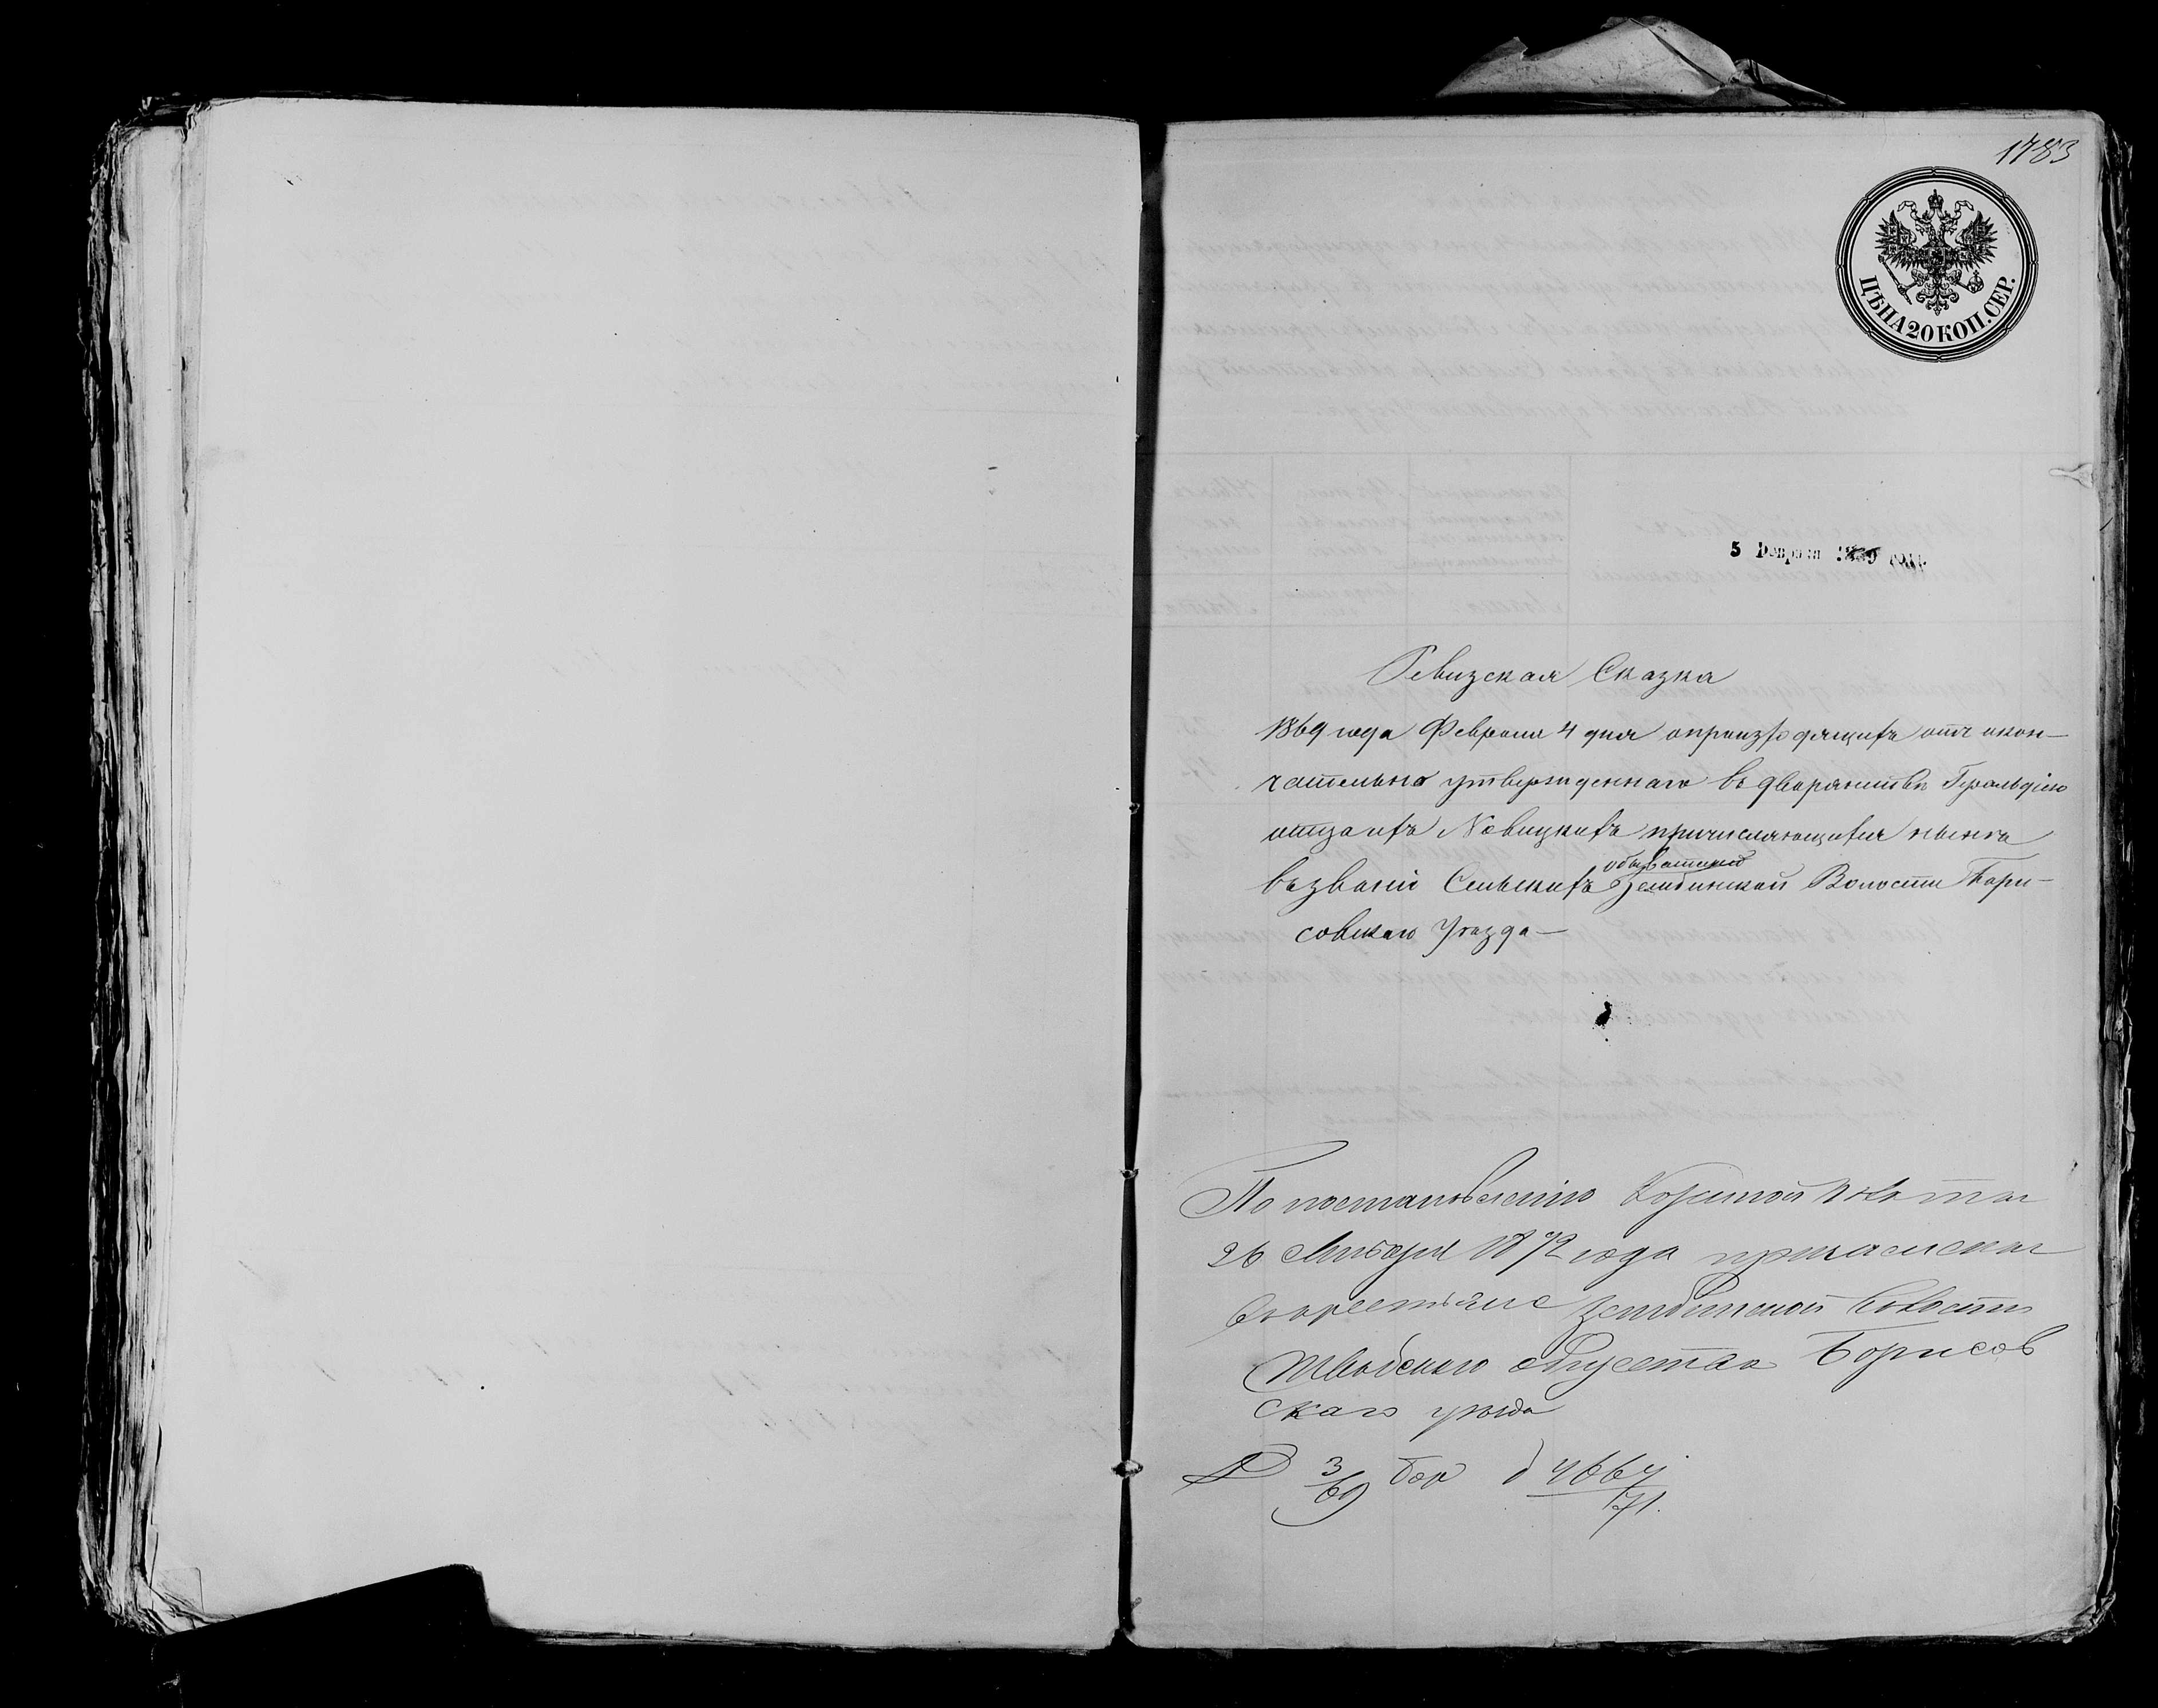 1783
ЦѢНА 20 КОП. СЕР.
5 Февраля 1869 года
Ревизская Сказка
1869 года Февраля 4 дня о происходящихъ отъ окон-
чательно утвержденнаго въ дворянствѣ Герольдіею
отца ихъ Новицкихъ причисляющихся нынѣ
въ званіи Сельскихъ обывателей Зембинской Волости Бори-
совскаго Уѣзда —
По постановленію Казенной Палаты
26 Января 1872 года причислены
въ крестьяне Зембинской волости
общества Борисов
скаго уѣзда
3/69 Бор д 4667/71.